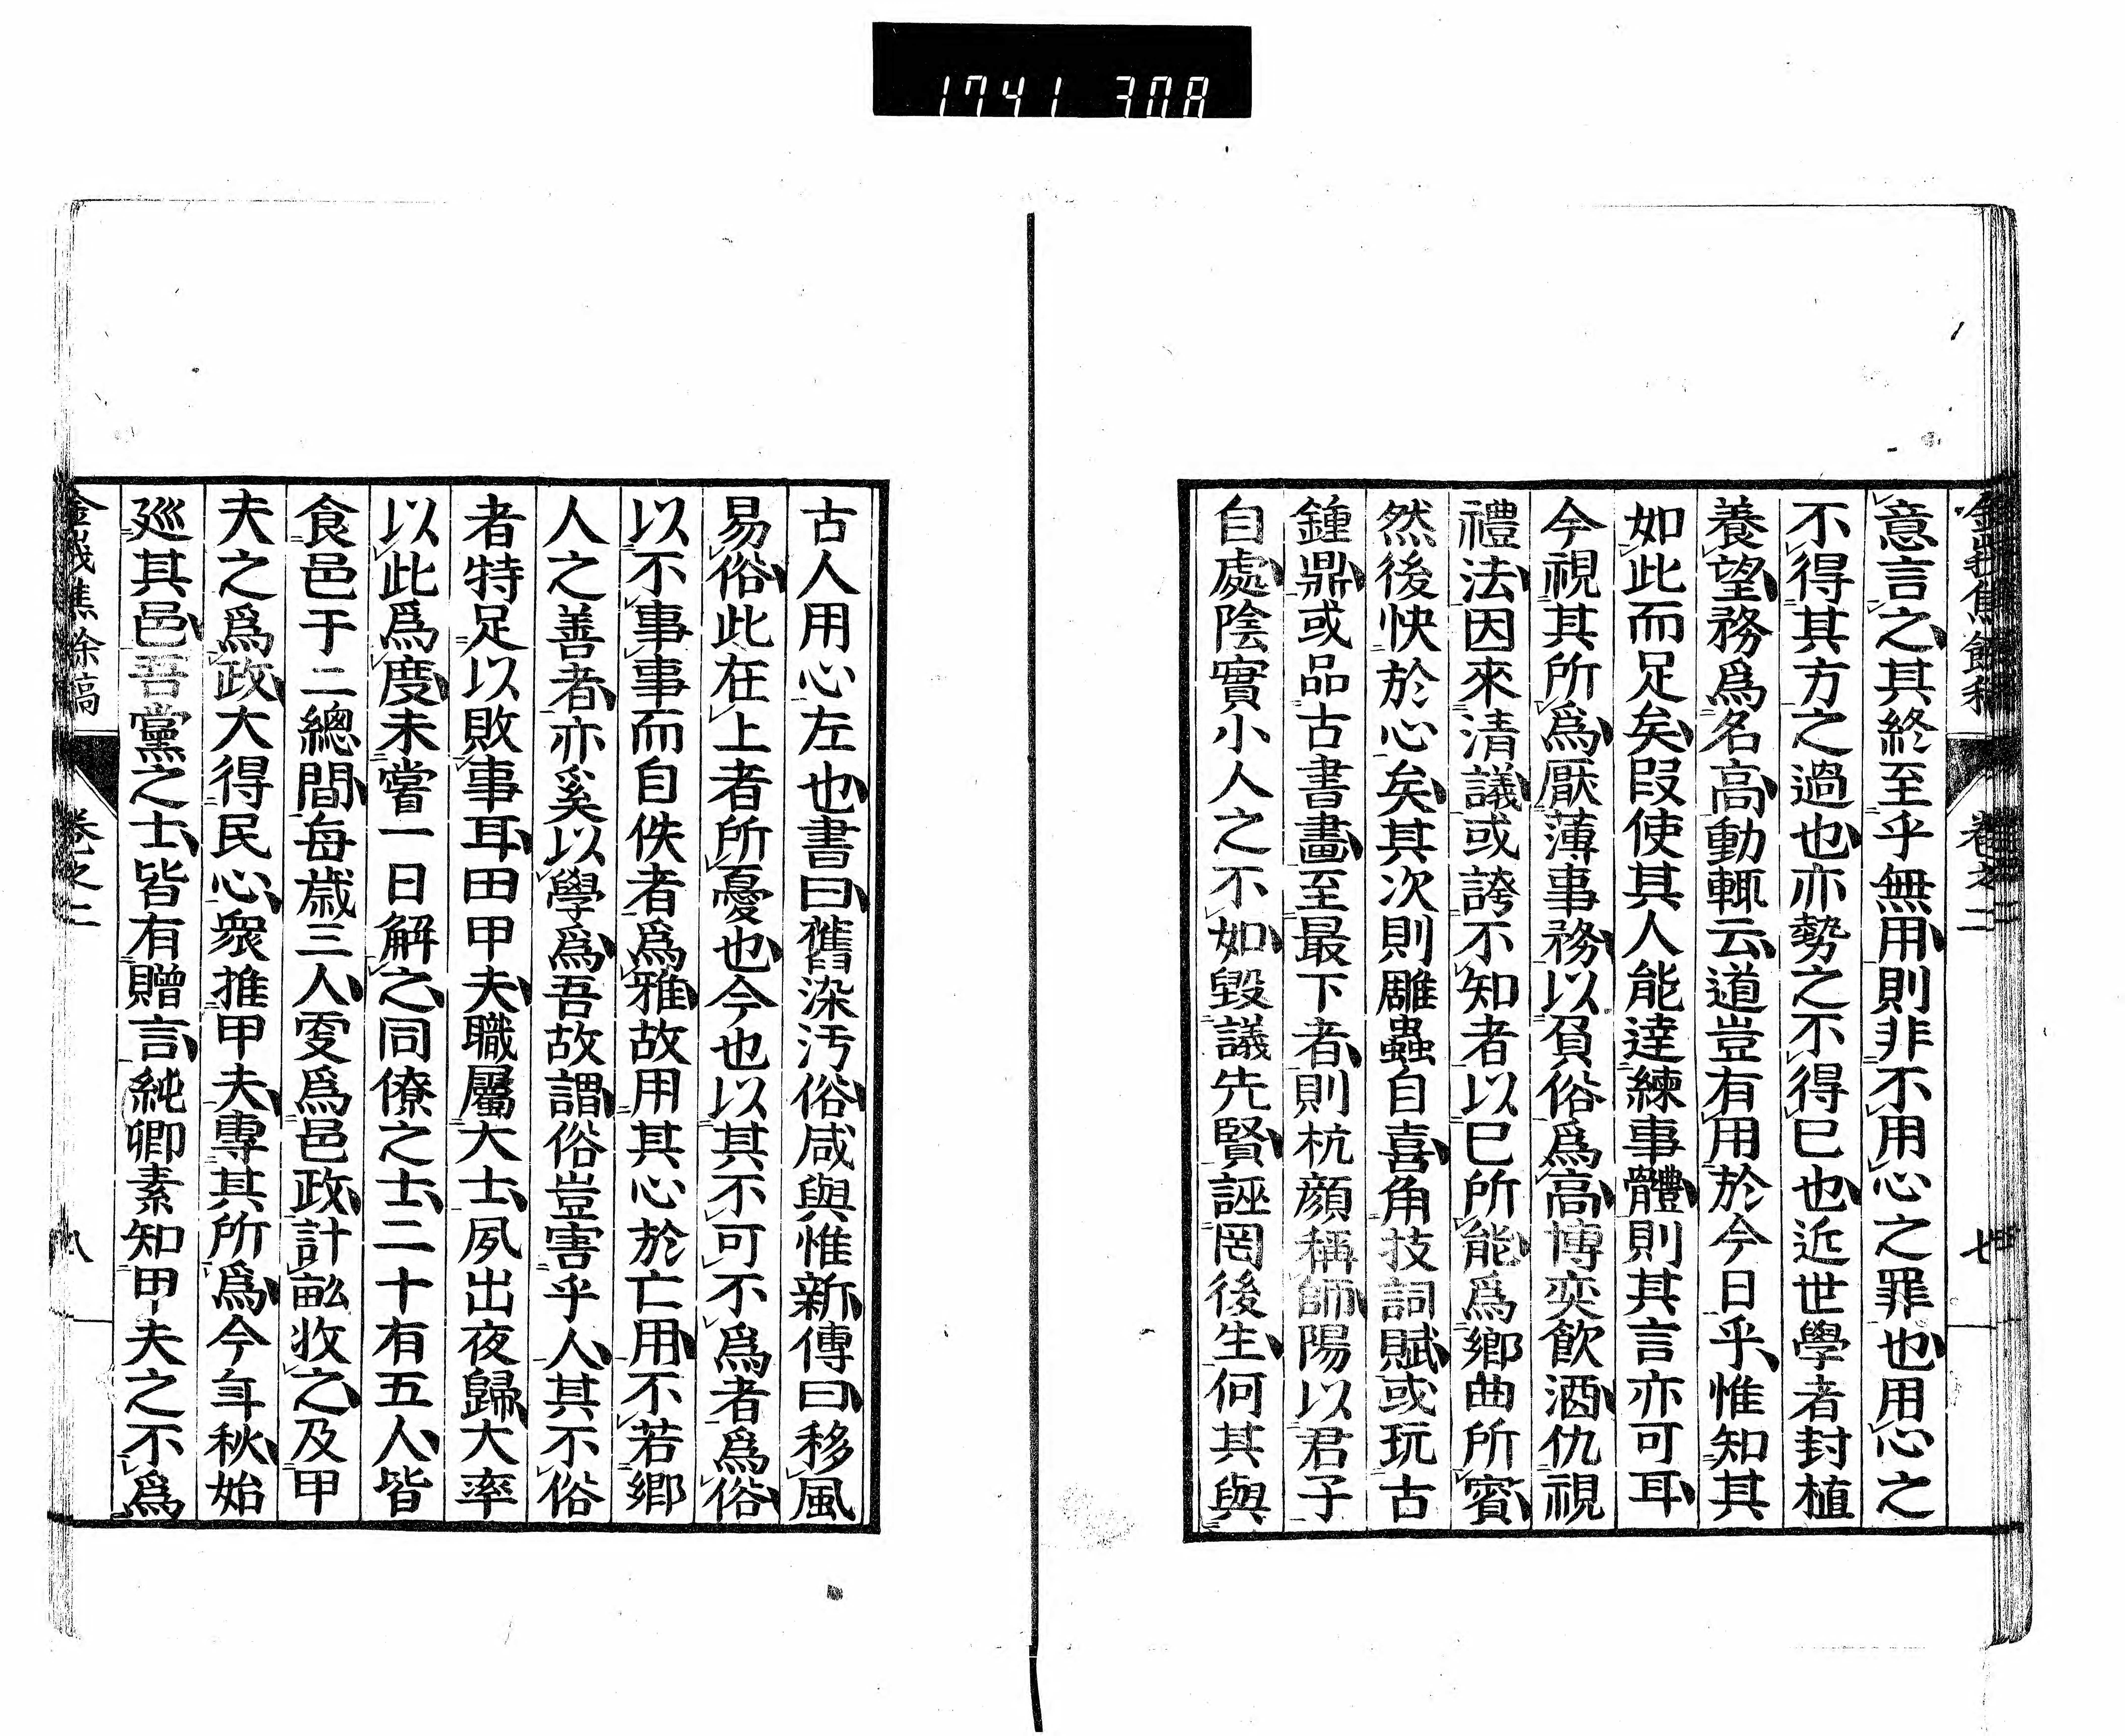 1741 308
卷之二
七
意言之其終至乎無用則非不用心之罪也用心之
不得其方之過也亦勢之不得已也近世學者封植
養望務爲名高動輒云道豈有用於今日乎惟知其
如此而足矣叚使其人能達練事體則其言亦可耳
今視其所爲厭薄事務以負俗爲高博奕飮酒仇視
禮法因來清議或誇不知者以已所能爲鄉曲所賓
然後快於心矣其次則雕蟲自喜角技詞賦或玩古
鍾鼎或品古書畫至最下者則杭顔稱師陽以君子
自處陰實小人之不如毀議先賢誣罔後生何其與
古人用心左也書曰舊染汚俗咸與惟新傳曰移風
易俗此在上者所憂也今也以其不可不爲者爲俗
以不事事而自佚者爲雅故用其心於亡用不若鄉
人之善者亦奚以學爲吾故謂俗豈害乎人其不俗
者特足以敗事耳田甲夫職屬大士夙出夜歸大率
以此爲度未嘗一日解之同僚之士二十有五人皆
食邑于二總間每歲三人更爲邑政計畝收之及甲
夫之爲政大得民心衆推甲夫專其所爲今年秋始
廵其邑吾黨之士皆有贈言純卿素知甲夫之不爲
金峩焦餘稿
卷之二
八